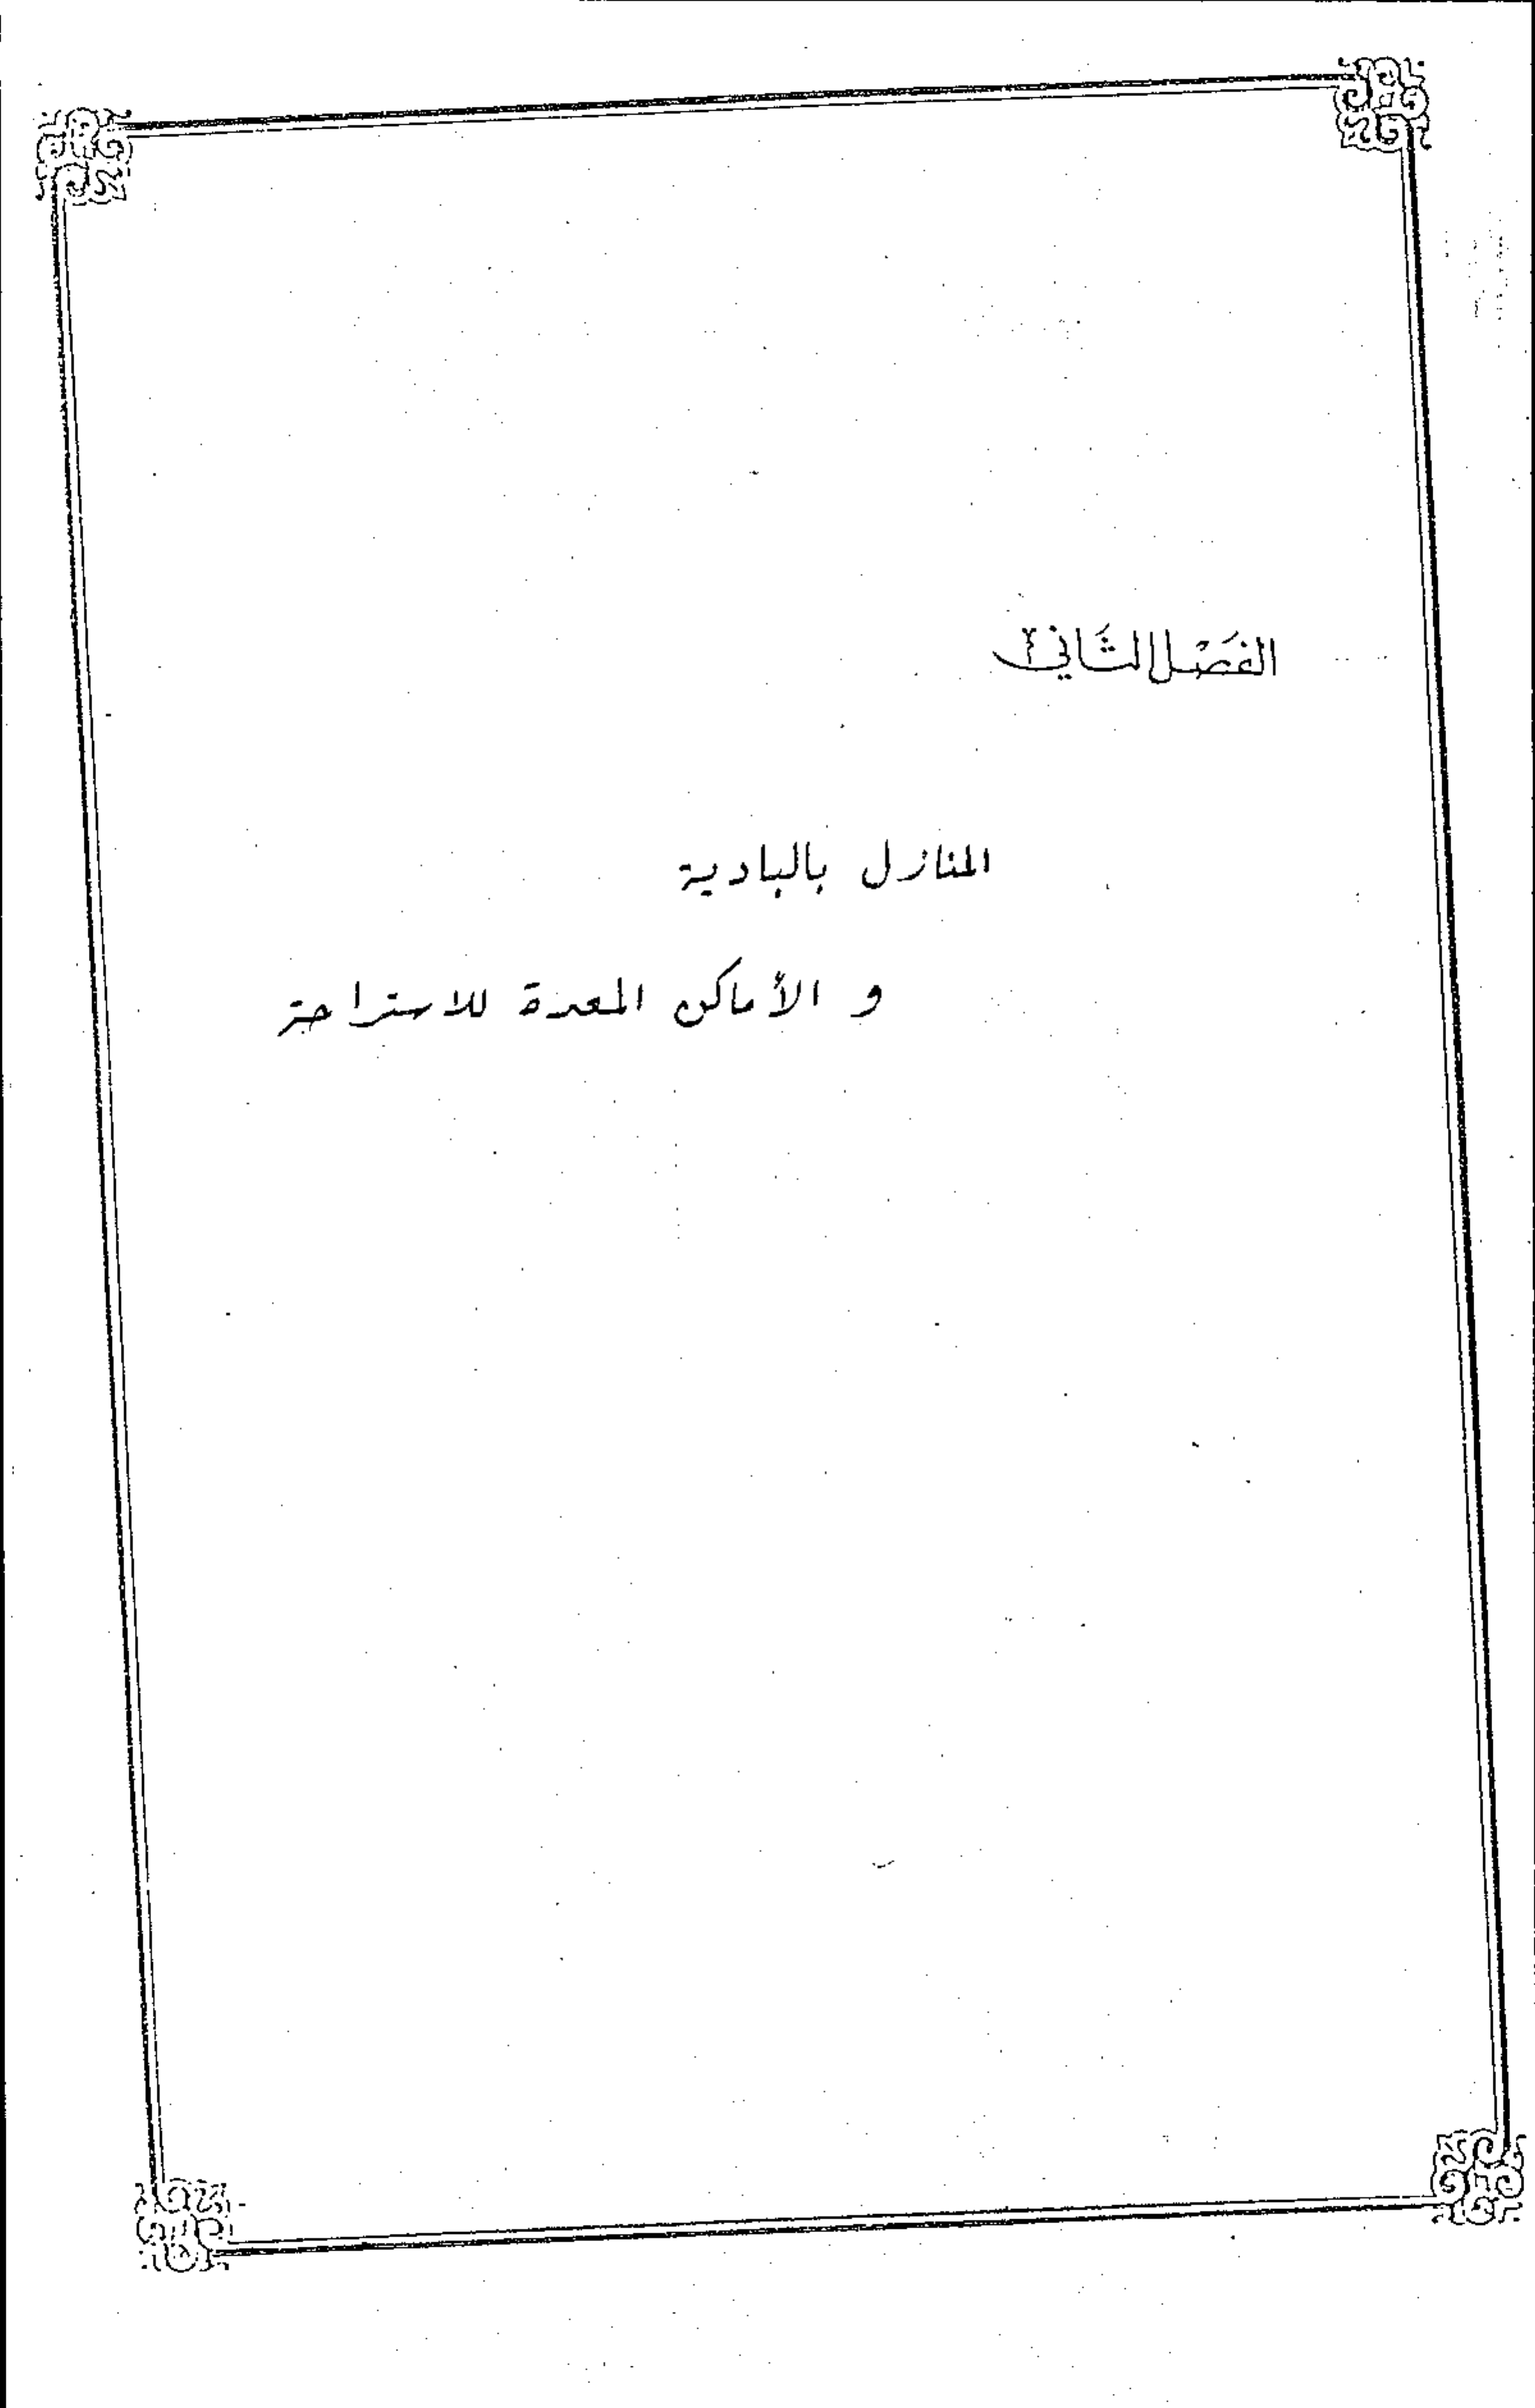 الفَصْل الثَّاني ٢
المنازل بالبادية
و الأماكن المعدة للاستراحة